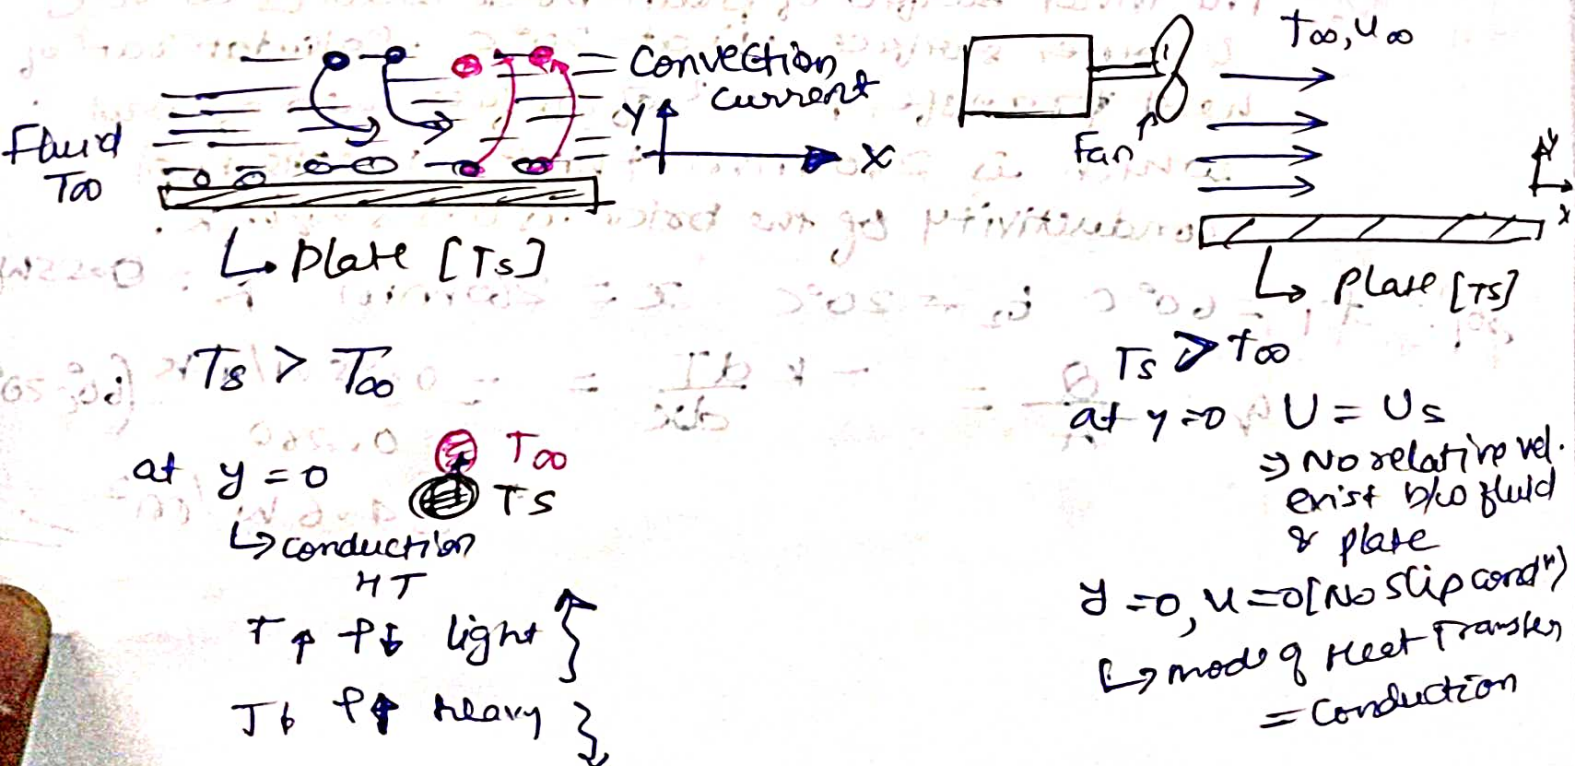 Convection
current
Y
X
Fluid
T∞
Plate [Ts]
Ts > T∞
at y = 0
T∞
TS
↳ conduction
HT
T↑ ρ↓ light
T↓ ρ↑ Heavy
T∞, U∞
Fan
Y
X
Plate [TS]
Ts > T∞
at y=0 U = Us
⇒ No relative vel.
exist b/w fluid
& plate
y=0, u=0 [No slip condⁿ)
↳ mode of Heat Transfer
= Conduction